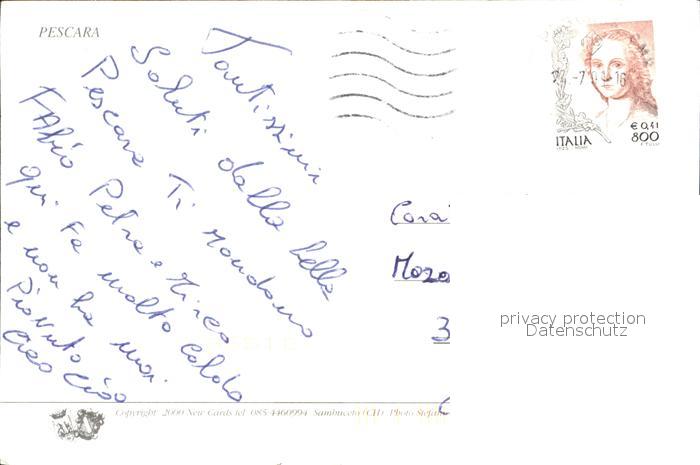 PESCARA
Tantissimi
Saluti dalla bella
Pescara Ti mandano
Fabio Petra e Mirco
qui fa molto caldo
e non ha mai
Piovuto
Ciao Ciao
€ 0,41
800
ITALIA
Corai
Moza
3
privacy protection
Datenschutz
Copyright 2000 New Cards tel 085/4460994 Sambuceto (CH) Photo Stefano